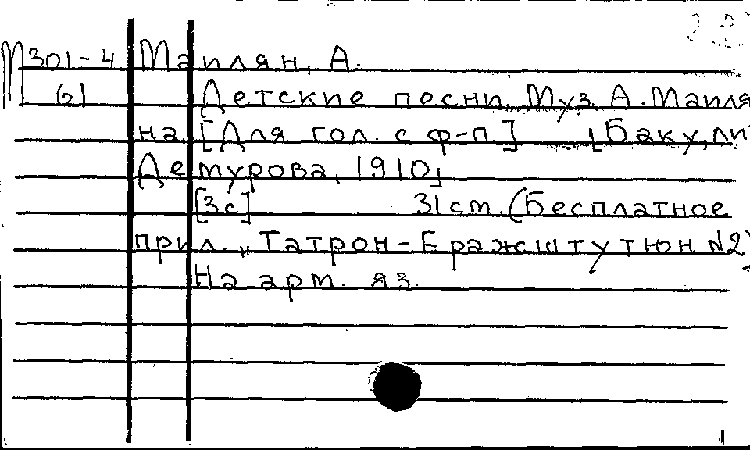 М301-4 Маилян, А.
(2) Детские песни. Муз. А. Маиля
на [Для гол. с ф-п] [Баку, ли
Демурова, 1910]
[3с] 31 см. (Бесплатное
прил. „Татрон-Бражштутюн №2)
На арм. яз.